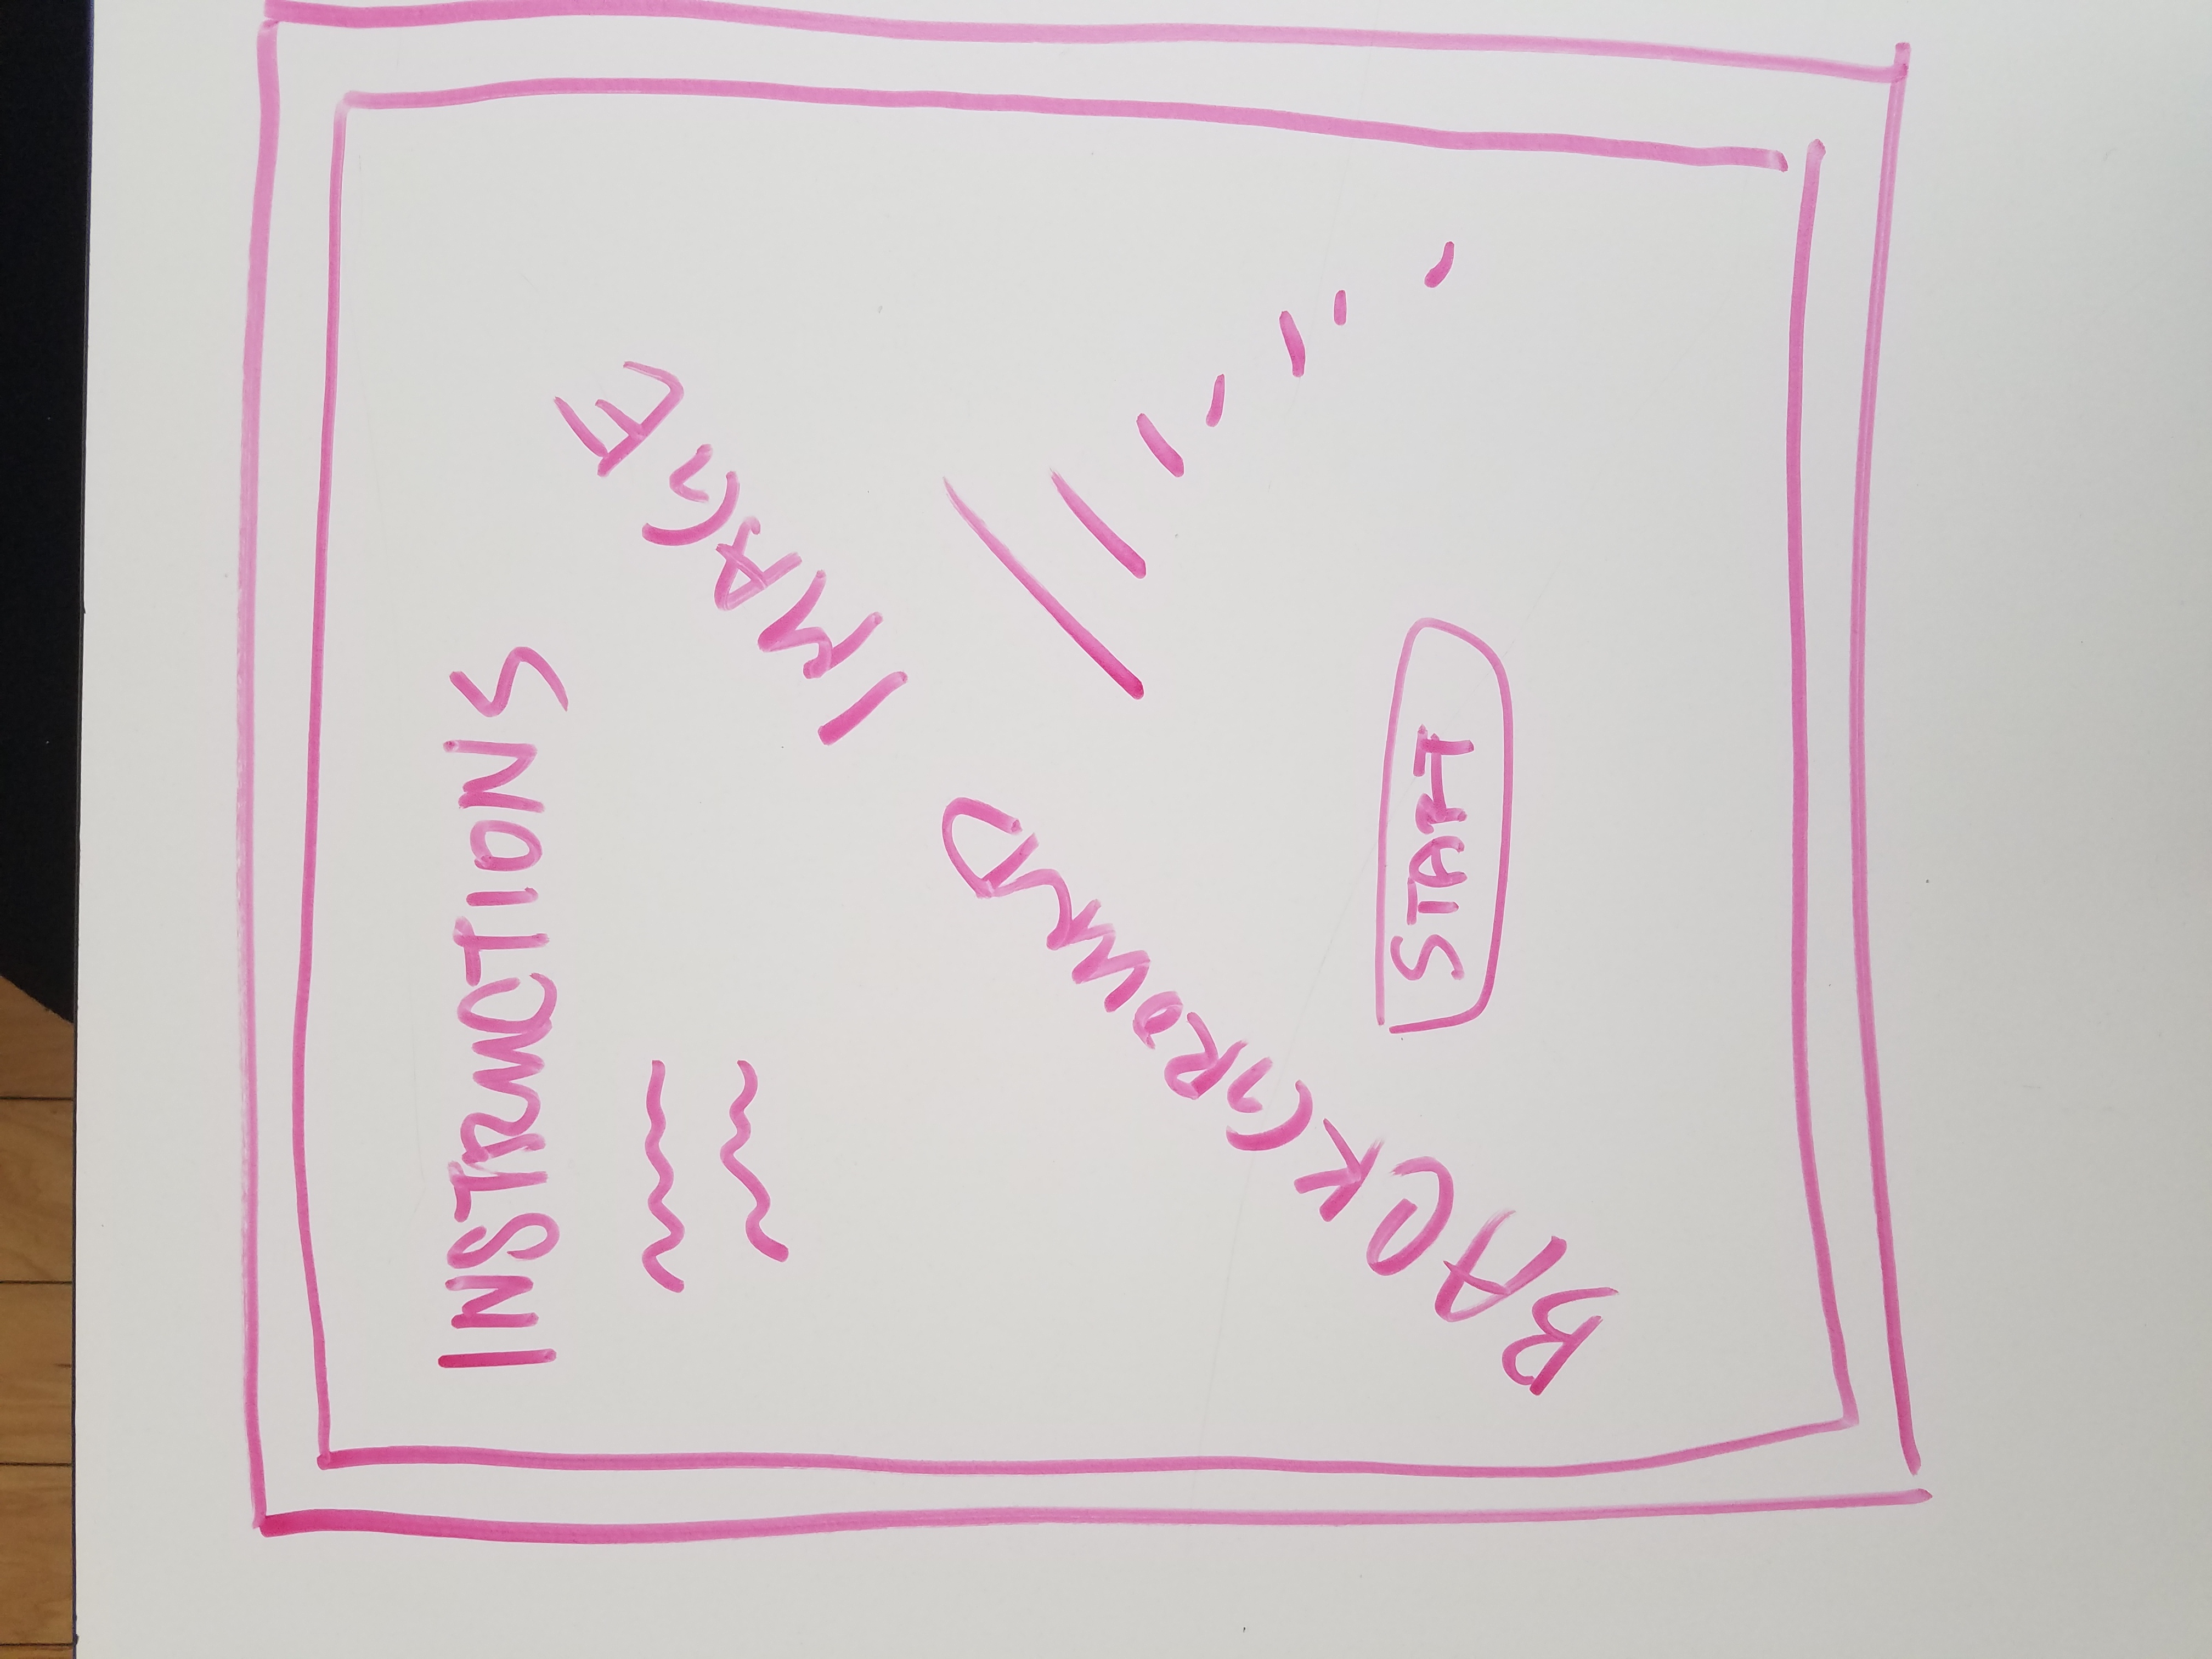 INSTRUCTIONS
BACKGROUND IMAGE
START